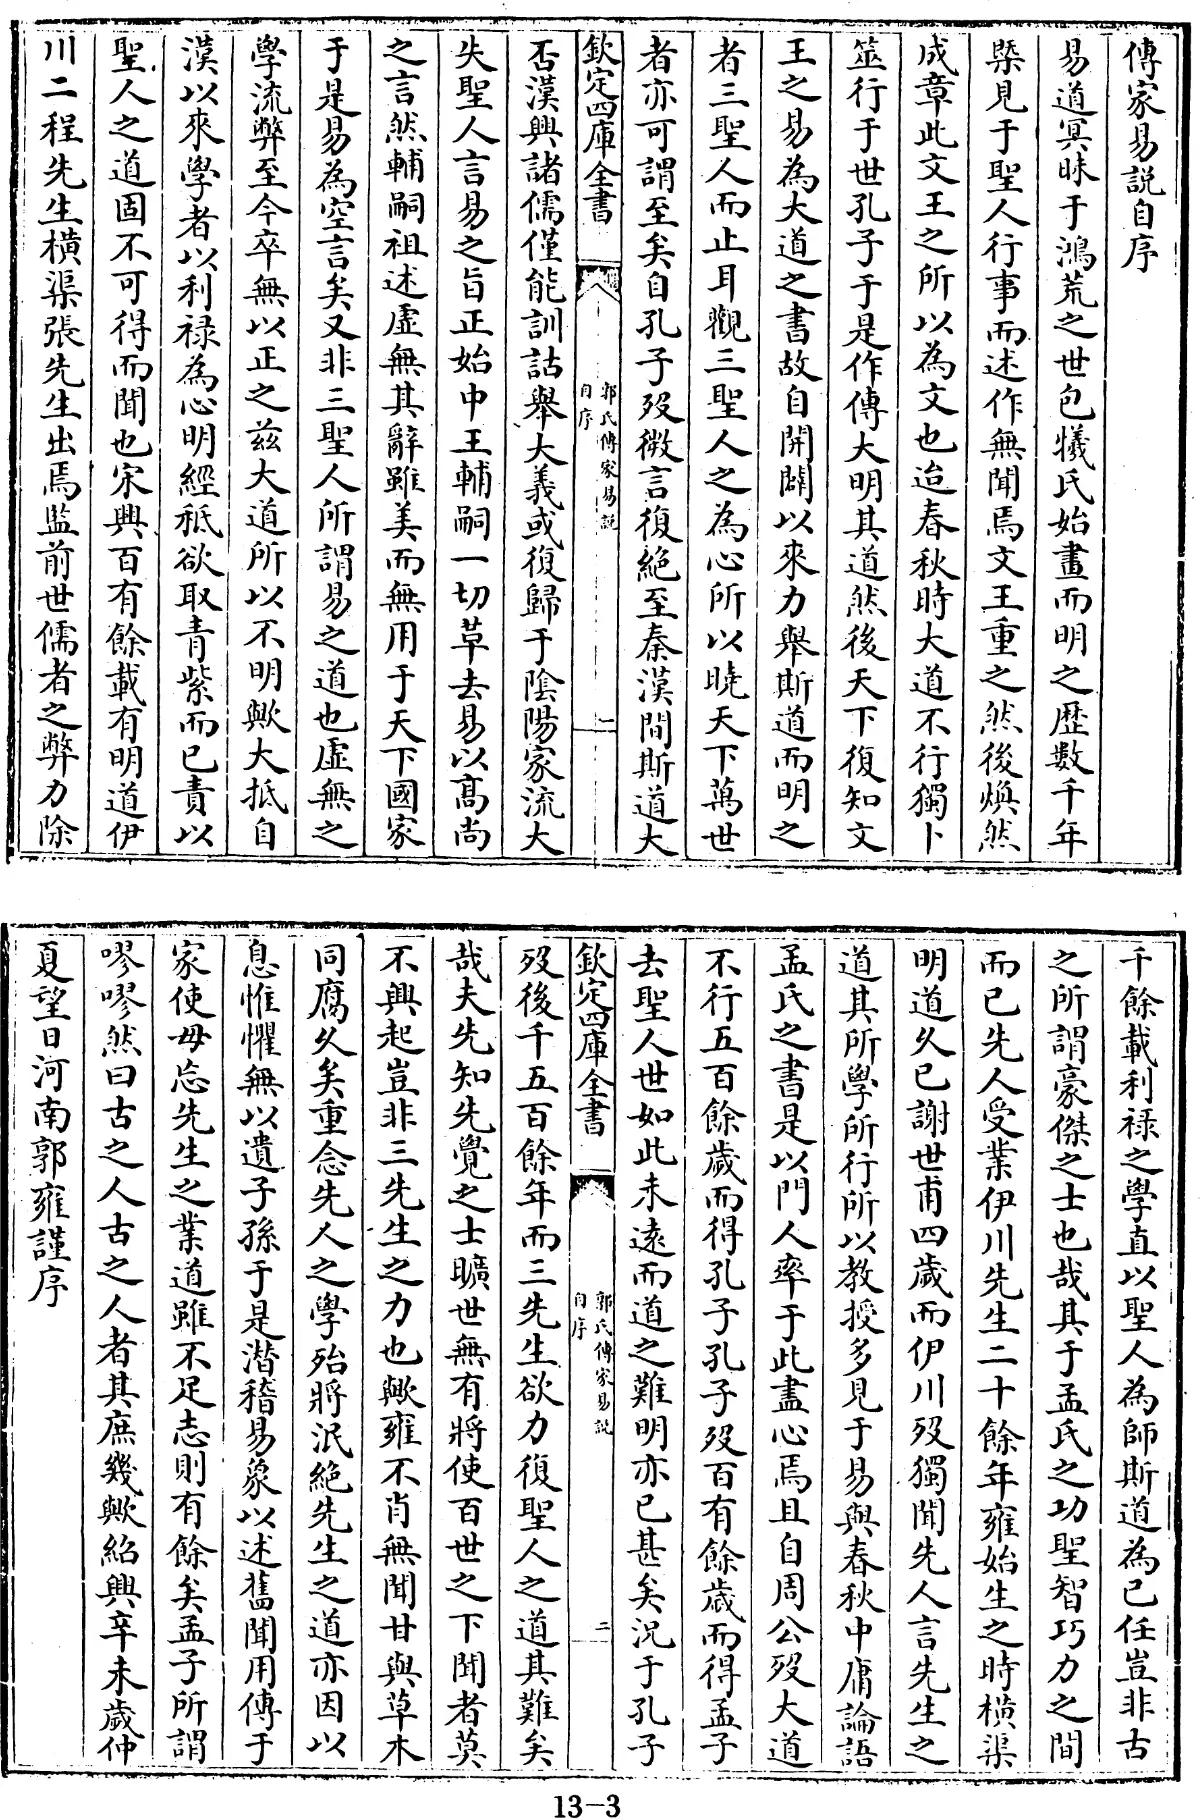 傳家易說自序
易道冥昧于鴻荒之世包犧氏始畫而明之歷數千年
槩見于聖人行事而述作無聞焉文王重之然後煥然
成章此文王之所以為文也迨春秋時大道不行獨卜
筮行于世孔子于是作傳大明其道然後天下復知文
王之易為大道之書故自開闢以來力舉斯道而明之
者三聖人而止耳觀三聖人之為心所以曉天下萬世
者亦可謂至矣自孔子歿微言復絕至秦漢間斯道大
欽定四庫全書
郭氏傳家易說
自序
一
否漢興諸儒僅能訓詁舉大義或復歸于陰陽家流大
失聖人言易之旨正始中王輔嗣一切革去易以高尚
之言然輔嗣祖述虛無其辭雖美而無用于天下國家
于是易為空言矣又非三聖人所謂易之道也虛無之
學流弊至今卒無以正之茲大道所以不明歟大抵自
漢以來學者以利祿為心明經秪欲取青紫而已責以
聖人之道固不可得而聞也宋興百有餘載有明道伊
川二程先生橫渠張先生出焉監前世儒者之弊力除
千餘載利祿之學直以聖人為師斯道為已任豈非古
之所謂豪傑之士也哉其于孟氏之功聖智巧力之間
而已先人受業伊川先生二十餘年雍始生之時橫渠
明道久已謝世甫四歲而伊川歿獨聞先人言先生之
道其所學所行所以教授多見于易與春秋中庸論語
孟氏之書是以門人率于此盡心焉且自周公歿大道
不行五百餘歲而得孔子孔子歿百有餘歲而得孟子
去聖人世如此未遠而道之難明亦已甚矣況于孔子
欽定四庫全書
郭氏傳家易說
自序
二
歿後千五百餘年而三先生欲力復聖人之道其難矣
哉夫先知先覺之士曠世無有將使百世之下聞者莫
不興起豈非三先生之力也歟雍不肖無聞甘與草木
同腐久矣重念先人之學殆將泯絕先生之道亦因以
息惟懼無以遺子孫于是潛稽易象以述舊聞用傳于
家使毋忘先生之業道雖不足志則有餘矣孟子所謂
嘐嘐然曰古之人古之人者其庶幾歟紹興辛未歲仲
夏望日河南郭雍謹序
13-3